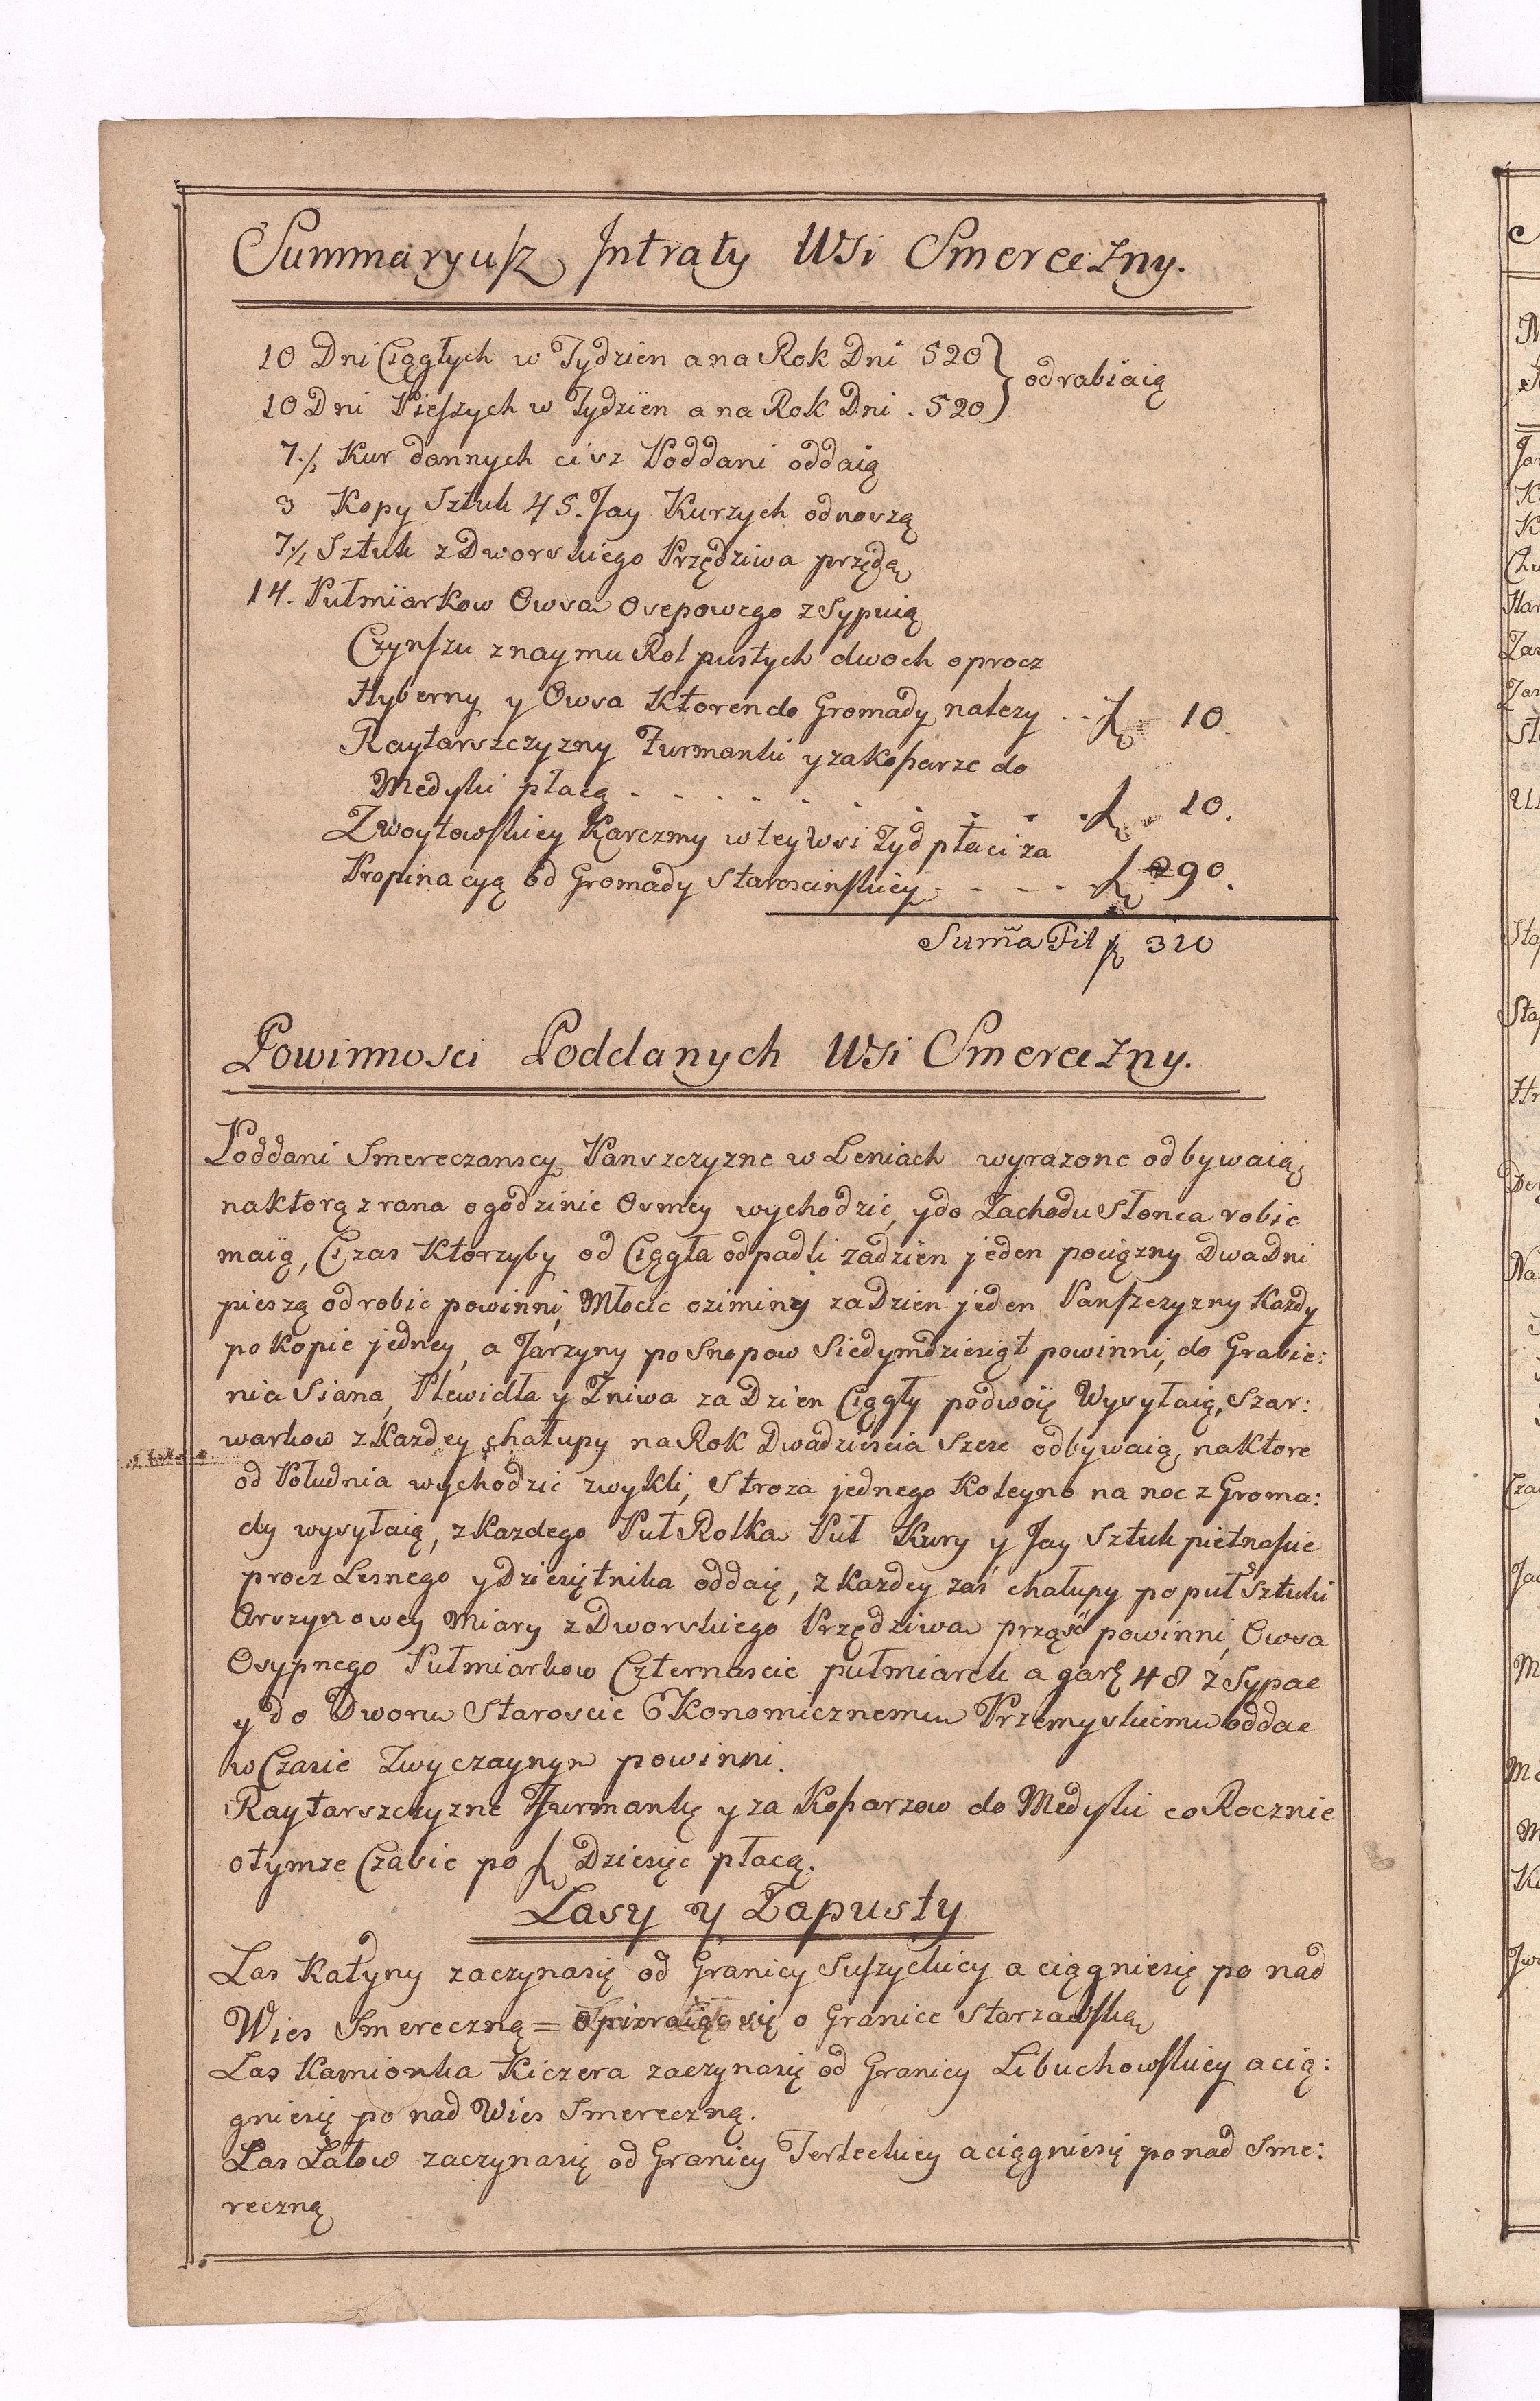 Summaryusz Jntraty Wsi Smereczny.
10 Dni Ciągłych w Tydzien a na Rok Dni 520 } odrabiaią
10 Dni Pieszych w Tydzien a na Rok Dni . 520
7 1/2 Kur dannych ciż Poddani oddaią
3 Kopy Sztuk 45. Jay Kurzych odnoszą
7 1/2 Sztuk z Dworskiego Przędziwa przędą
14. Pułmiarkow Owsa Osepowego zsypuią
Czynszu znaymu Rol pustych dwoch oprocz
Hyberny y Owsa Ktoren do Gromady nalezy . . zł 10.
Raytarszczyzny Furmanki y za Koparze do
Medyki płacą . . . . . . . . . zł 10.
Z Woytowskiey Karczmy w tey Wsi Zyd płaci za
Propinacyą od Gromady Staroscinskiey . . . . zł 290.
Summa Fit zł 310
Powinnosci Poddanych Wsi Smereczny.
Poddani Smereczanscy Panszczyzne w Leniach wyrazone odbywaią,
na ktorą z rana o godzinie Osmey wychodzic, y do Zachodu Słonca robic
maią, Czas Ktorzyby od Ciągła odpadli za dzien jeden pociązny Dwa Dni
pieszą odrobic powinni, Młocic oziminy za Dzien jeden Panszczyzny Kazdy
po Kopie jedney, a Jarzyny po Snopow Siedymdziesiąt powinni, do Grabie:
nia Siana, Plewidła y Zniwa za Dzien Ciągły podwoię Wysyłaią, Szar:
warkow z Kazdey chałupy na Rok Dwadziescia Szesc odbywaią, na ktore
od Południa wychodzic zwykli, Stroza jednego Koleyno na noc z Groma:
dy wysyłaią, z Kazdego Puł Rolka Puł Kury y Jay Sztuk pietnascie
procz Lesnego y Dziesiętnika oddaię, z Kazdey zaś chałupy po puł Sztuki
Arszynowey Miary z Dworskiego Przędziwa prząść powinni, Owsa
Osypnego Pułmiarkow Czternascie pułmiarek a garc 48 zsypac
y do Dworu Staroscie Ekonomicznemu Przemyskiemu oddac
w Czasie Zwyczaynym powinni.
Raytarszczyzne Furmankę y za Koparzow do Medyki co Rocznie
o tymze Czasie po zł Dziesięc płacą.
Lasy y Zapusty
Las Katyny zaczynasię od Granicy Suszyckiey a ciągniesię po nad
Wies Smereczną = o Granice Starzawską
Las Kamionka Kiczera zaczynasię od Granicy Libuchowskiey a cią:
gniesię po nad Wies Smereczną.
Las Łatow zaczynasię od Granicy Terleckiey a ciągniesię ponad Sme:
reczną